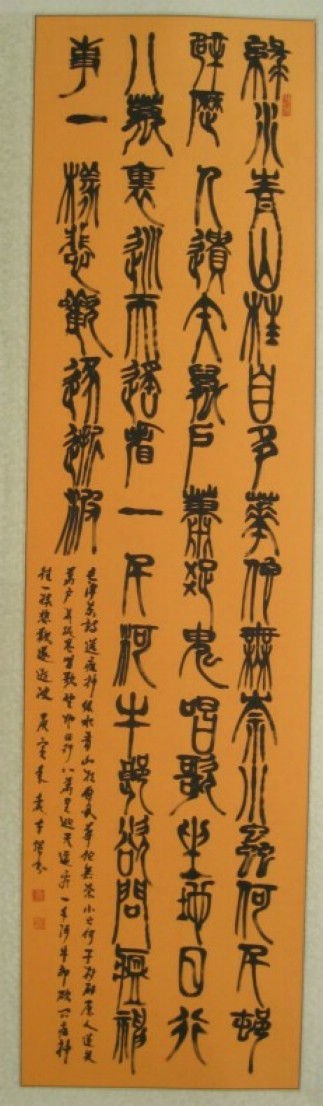 綠水春山枉自多華佗無奈小蟲何千邨
薜歷人遺矢萬戶蕭疏鬼唱歌坐地日行
八萬裏巡天遙看一千河牛郎欲問瘟神
事一樣悲歡逐逝波
毛澤東詩送瘟神綠水青山枉自多華佗無奈小虫何千村薜荔人遺矢
萬戶蕭疏鬼唱歌坐地日行八萬里巡天遙看一千河牛郎欲問瘟神
一樣悲歡逐逝波 庚寅